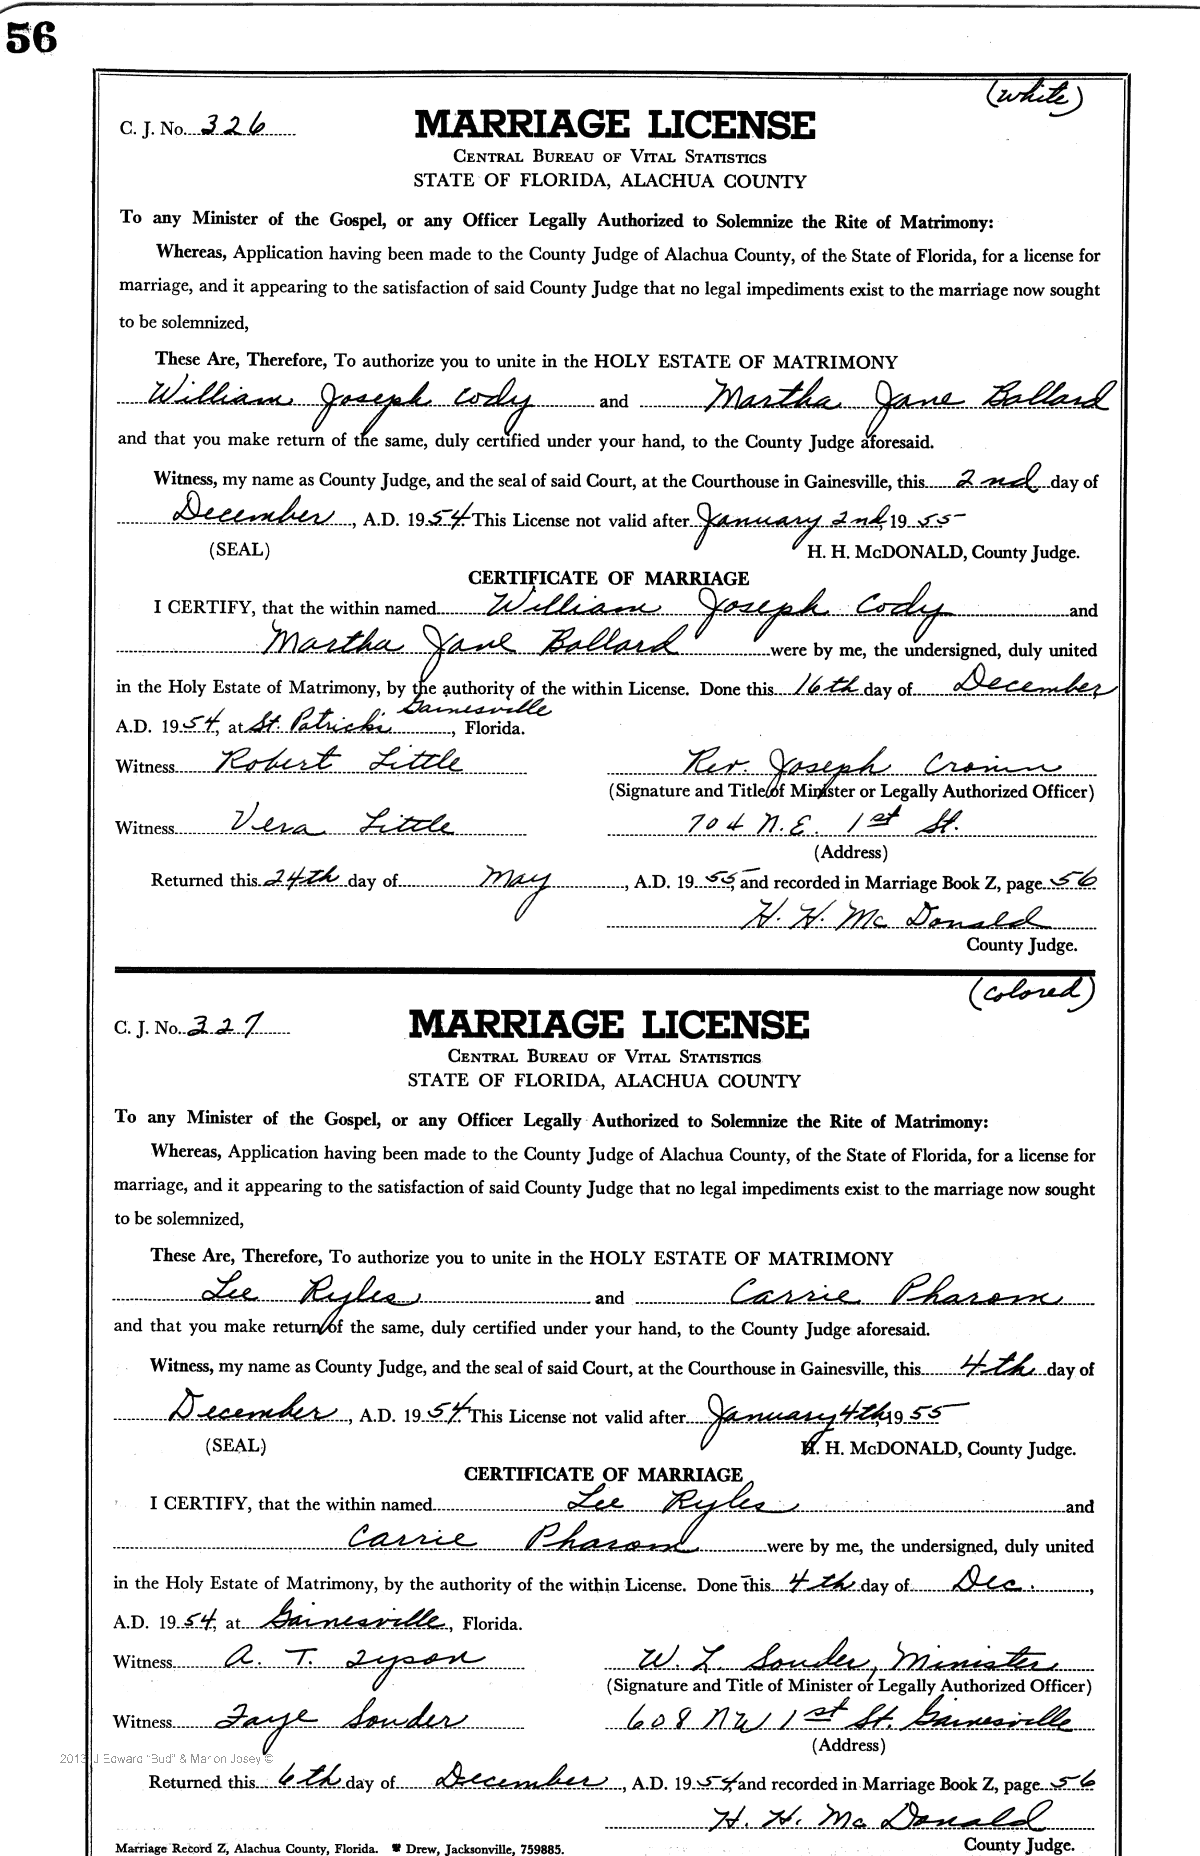 56
(white)
C. J. No. 326
MARRIAGE LICENSE
CENTRAL BUREAU OF VITAL STATISTICS
STATE OF FLORIDA, ALACHUA COUNTY
To any Minister of the Gospel, or any Officer Legally Authorized to Solemnize the Rite of Matrimony:
Whereas, Application having been made to the County Judge of Alachua County, of the State of Florida, for a license for
marriage, and it appearing to the satisfaction of said County Judge that no legal impediments exist to the marriage now sought
to be solemnized,
These Are, Therefore, To authorize you to unite in the HOLY ESTATE OF MATRIMONY
William Joseph Cody and Martha Jane Ballard
and that you make return of the same, duly certified under your hand, to the County Judge aforesaid.
Witness, my name as County Judge, and the seal of said Court, at the Courthouse in Gainesville, this 2nd day of
December, A.D. 1954 This License not valid after January 2nd, 1955
(SEAL) H. H. McDONALD, County Judge.
CERTIFICATE OF MARRIAGE
I CERTIFY, that the within named William Joseph Cody and
Martha Jane Ballard were by me, the undersigned, duly united
in the Holy Estate of Matrimony, by the authority of the within License. Done this 16th day of December,
Gainesville
A.D. 1954, at St. Patricks, Florida.
Witness Robert Little Rev. Joseph Cronin
(Signature and Title of Minister or Legally Authorized Officer)
Witness Vera Little 704 N.E. 1st St.
(Address)
Returned this 24th day of May, A.D. 1955, and recorded in Marriage Book Z, page 56
H. H. McDonald
County Judge.
(colored)
C. J. No. 327
MARRIAGE LICENSE
CENTRAL BUREAU OF VITAL STATISTICS
STATE OF FLORIDA, ALACHUA COUNTY
To any Minister of the Gospel, or any Officer Legally Authorized to Solemnize the Rite of Matrimony:
Whereas, Application having been made to the County Judge of Alachua County, of the State of Florida, for a license for
marriage, and it appearing to the satisfaction of said County Judge that no legal impediments exist to the marriage now sought
to be solemnized,
These Are, Therefore, To authorize you to unite in the HOLY ESTATE OF MATRIMONY
Lee Ryles and Carrie Pharom
and that you make return of the same, duly certified under your hand, to the County Judge aforesaid.
Witness, my name as County Judge, and the seal of said Court, at the Courthouse in Gainesville, this 4th day of
December, A.D. 1954. This License not valid after January 4th, 1955
(SEAL) H. H. McDONALD, County Judge.
CERTIFICATE OF MARRIAGE
I CERTIFY, that the within named Lee Ryles and
Carrie Pharom were by me, the undersigned, duly united
in the Holy Estate of Matrimony, by the authority of the within License. Done this 4th day of Dec.,
A.D. 1954, at Gainesville, Florida.
Witness A. T. Tyson W. L. Souder, Minister
(Signature and Title of Minister or Legally Authorized Officer)
Witness Faye Souder 608 NW 1st St. Gainesville
(Address)
2013 J Edward "Bud" & Marion Josey ©
Returned this 6th day of December, A.D. 1954, and recorded in Marriage Book Z, page 56
H. H. McDonald
County Judge.
Marriage Record Z, Alachua County, Florida. Drew, Jacksonville, 759885.